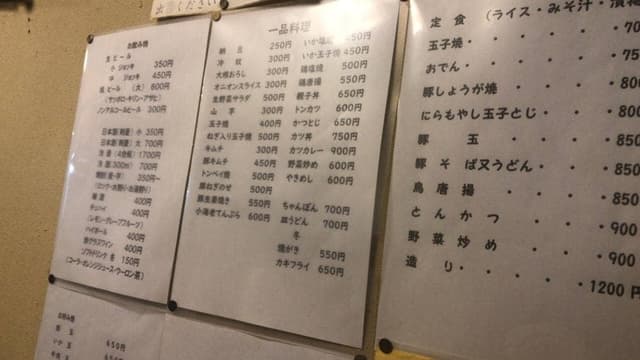 出
ください
お飲み物
生ビール
小 ジョッキ 350円
中 ジョッキ 450円
瓶 ビール (大) 800円
(サッポロ・キリン・アサヒ)
ノンアルコールビール 300円
日本酒(剣菱) 小 350円
日本酒(剣菱) 大 700円
冷酒(300m) 700円
350円~
梅酒 400円
チュハイ 400円
(レモン・グレープフルーツ)
ハイボール 400円
グラスワイン 400円
ソフトドリンク 各 150円
(コーラ・オレンジジュース・ウーロン茶)
一品料理
納豆 250円
冷奴 300円
大根おろし 300円
オニオンスライス 300円
生野菜サラダ 500円
山芋 300円
玉子焼 400円
ねぎ入り玉子焼 500円
キムチ 300円
豚キムチ 450円
トンペイ焼 500円
豚ねぎのせ 500円
豚生姜焼き 550円
小海老てんぷら 600円
いか塩焼 450円
いか玉子焼 450円
鶏塩焼 500円
鶏唐揚 550円
親子丼 650円
トンカツ 600円
かつとじ 650円
カツ丼 750円
カツカレー 900円
野菜炒め 600円
やきめし 600円
ちゃんぽん 700円
皿うどん 700円
冬
焼がき 550円
カキフライ 650円
定食 (ライス・みそ汁・漬
玉子焼・・・・・
おでん・・・・・
豚しょうが焼・・・・
にらもやし玉子とじ・・
豚玉・・・・・850
豚そば又うどん・・850
鳥唐揚・・・・850
とんかつ・・・・900
野菜炒め・・・・900
造り・・・・・1200円
お好み焼
650円
いか玉 650円